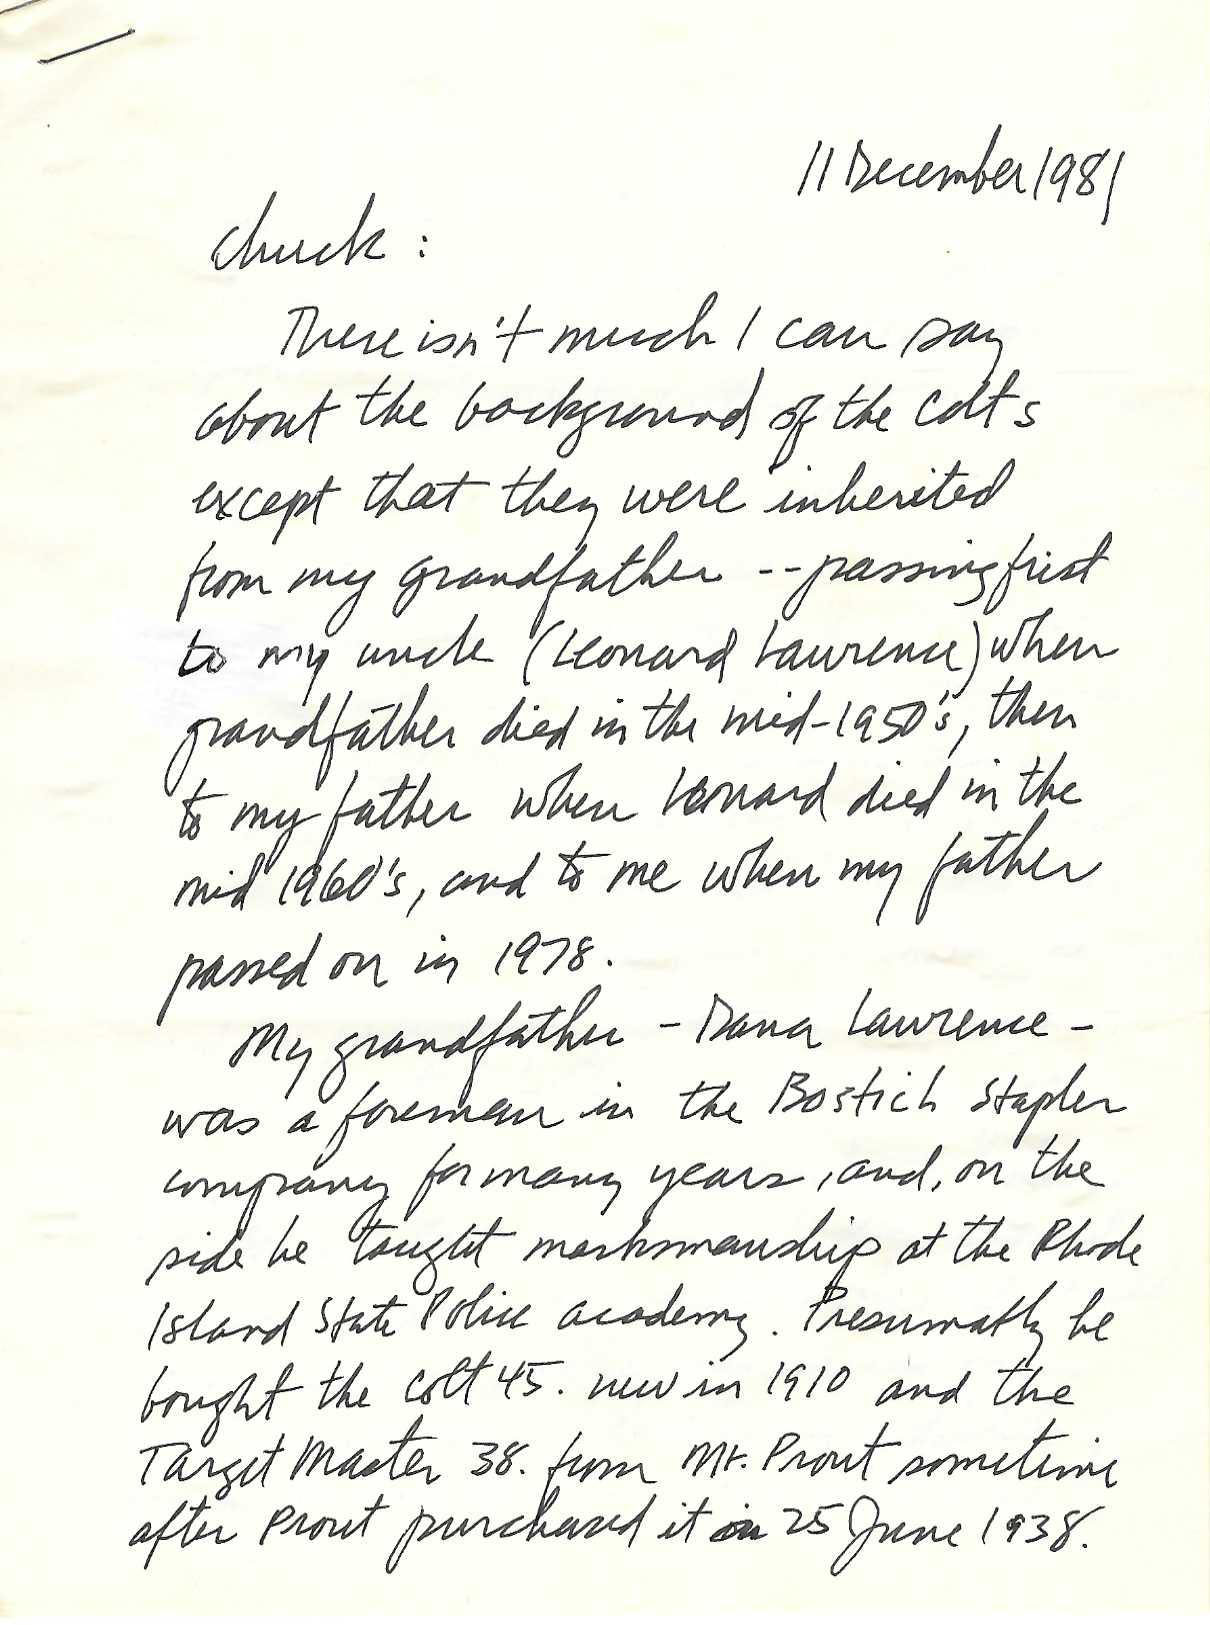 11 December 1981
Chuck:
There isn't much I can say
about the background of the Colts
except that they were inherited
from my grandfather -- passing first
to my uncle (Leonard Lawrence) when
grandfather died in the mid-1950's, then
to my father when Leonard died in the
mid 1960's, and to me when my father
passed on in 1978.
My grandfather - Dana Lawrence -
was a foreman in the Bostich Stapler
company for many years, and, on the
side he taught marksmanship at the Rhode
Island State Police academy. Presumably he
bought the Colt 45. new in 1910 and the
Target Master 38. from Mr. Prout sometime
after Prout purchased it on 25 June 1938.